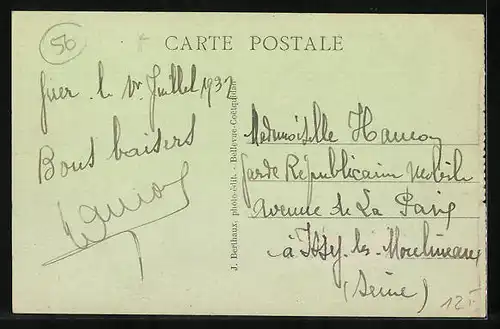 56
CARTE POSTALE
Guer. le 1er Juillet 1932
Bons baisers
J. Berthaux, photo-édit. - Bellevue-Coëtquidan
Mademoiselle Hamon
Garde Républicaine Mobile
Avenue de La Paix
à Issy-les-Moulineaux
(Seine)
12